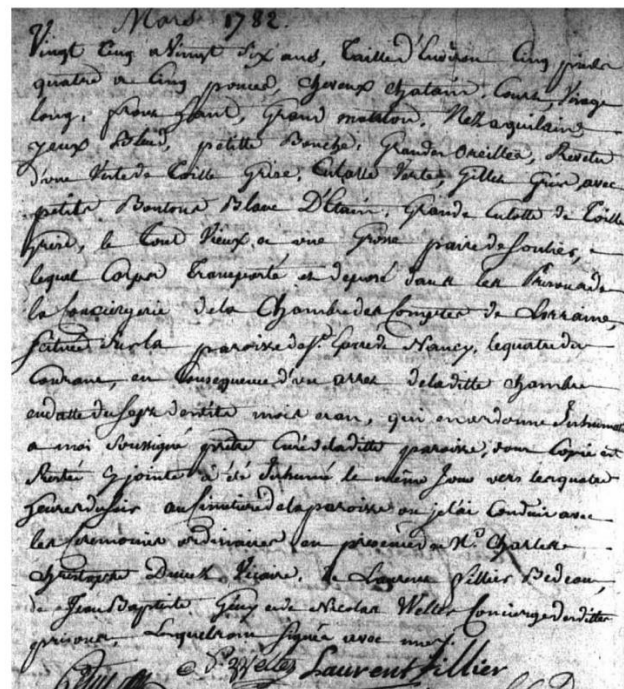 Mars 1782.
Vingt Cinq a Vingt Six ans, Taille d'Environ Cinq pieds
quatre a Cinq pouces, cheveux chatain, Court, Visage
long, front haut, Grand menton, Nez aquilain
yeux Bleud, petitte Bouche, Grandes Oreilles, Revetu
d'une Veste de Toille Grise, Culotte Vertes, Gillet Gris avec
petits Boutons Blanc D'Etain, Grande Culotte de Toille
Grise, le Tout Vieux, a une Grosse paire de Soulier,
lequel Corps Transporté et deposé dans les Prisons de
la Conciergerie de la Chambre des Comptes de Lorraine,
scituée sur la paroisse de St. de Nancy, le quatre du
Courant, en Consequence d'un arret de laditte chambre
en datte du Sept dudit mois et an, qui en ordonne
a moi Soussigné prêtre Curé de laditte paroisse, dont Copie est
Restée cy jointe a été Inhumé le même Jour vers les quatre
heures du soir au Cimetiere de la paroisse ou je l'ai Conduit avec
les Ceremonies ordinaires en presence de Mr. Charles
christophe Vicaire, de Laurent Villier Bedeau,
de Jean Baptiste et de Nicolas Welter Concierge desdittes
prisons, Lesquels ont Signés avec moi.
Laurent Villier